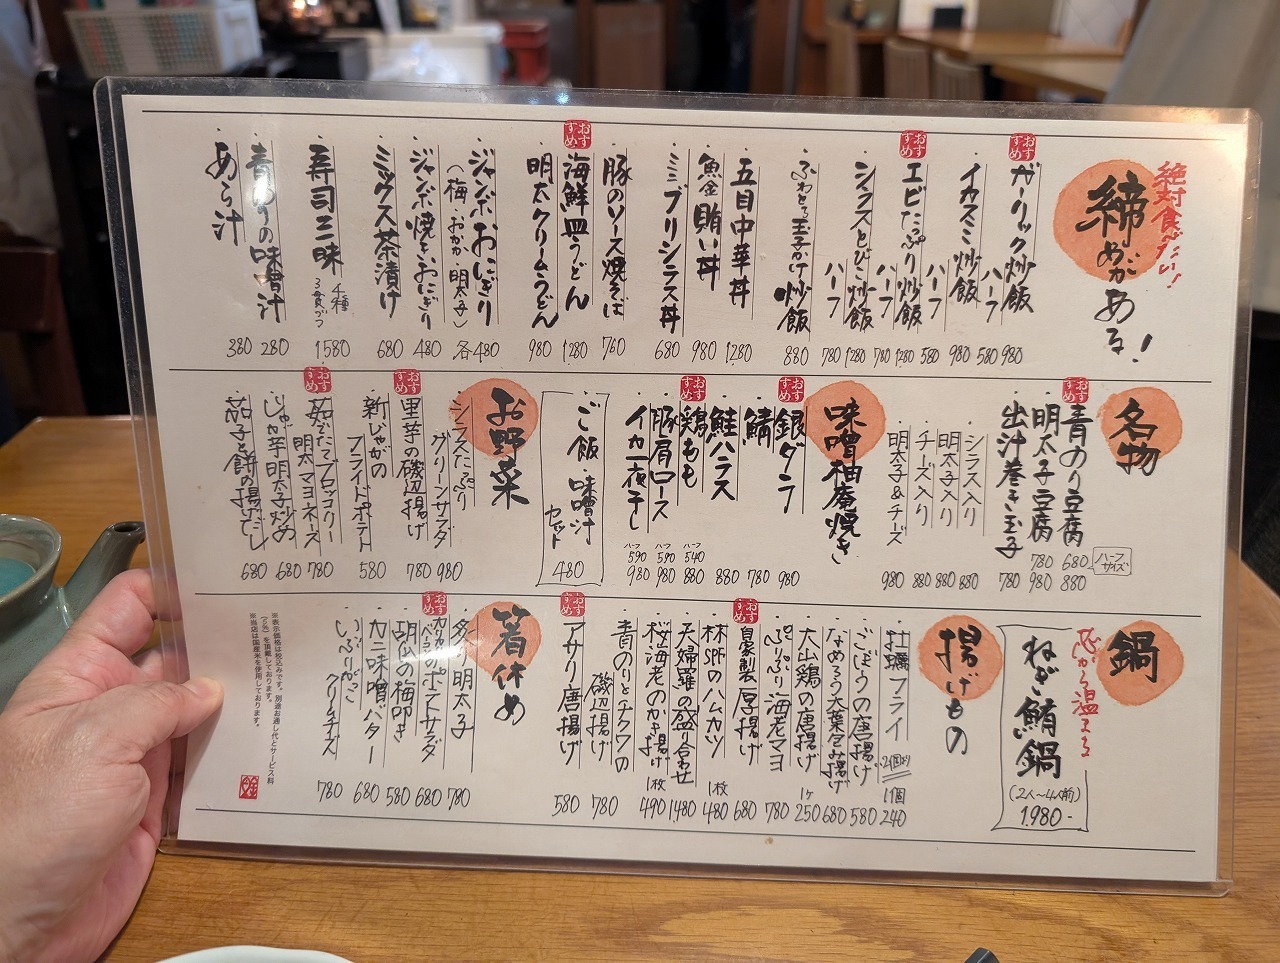 絶対食べたい!
締めがある!
おすすめ
ガーリック炒飯 980
ハーフ 580
イカスミ炒飯 980
ハーフ 580
おすすめ
エビたっぷり炒飯 1280
ハーフ 780
シラスとびこ炒飯 1280
ハーフ 780
ふわとろ玉子かけ炒飯 880
五目中華丼 1280
魚金賄い丼 980
ミニブリシラス丼 680
豚のソース焼そば 760
おすすめ
海鮮皿うどん 1280
明太クリームうどん 980
ジャンボおにぎり
(梅・おかか・明太子) 各480
ジャンボ焼きおにぎり 480
ミックス茶漬け 680
寿司三昧 4種 3貫づつ 1580
青のりの味噌汁 280
あら汁 380
名物
おすすめ
青のり豆腐 880
ハーフサイズ 680
明太子豆腐 980
780
出汁巻き玉子 780
シラス入り 880
明太子入り 880
チーズ入り 880
明太子&チーズ 980
味噌柚庵焼き
おすすめ
銀ダラ 980
鯖 780
鮭ハラス 880
おすすめ
鶏もも 880
ハーフ 540
豚肩ロース 980
ハーフ 590
イカ一夜干し 980
ハーフ 590
ご飯・味噌汁セット 480
お野菜
シラスたっぷり
グリーンサラダ 980
おすすめ
里芋の磯辺揚げ 780
新じゃがの
フライドポテト 580
おすすめ
茹でたてブロッコリー
明太マヨネーズ 780
じゃが芋明太子炒め 680
茄子と餅の揚げだし 680
鍋
芯から温まる
ねぎ鮪鍋
(2人〜4人前)
1980-
揚げもの
牡蠣フライ 2個より 1個 240
ごぼうの唐揚げ 580
なめろう大葉包み揚げ 680
大山鶏の唐揚げ 1ヶ 250
ぷりぷり海老マヨ 780
おすすめ
自家製厚揚げ 680
林SPFのハムカツ 1枚 480
天婦羅の盛り合わせ 1480
桜海老のかき揚げ 1枚 490
青のりとチクワの
磯辺揚げ 780
おすすめ
アサリ唐揚げ 580
箸休め
炙り明太子 780
おすすめ
カリカリベーコンのポテトサラダ 680
胡瓜の梅叩き 580
カニ味噌バター 680
いぶりがっこ
クリームチーズ 780
※表示価格は税込みです。別途お通し代とサービス料
(5%)を頂戴しております。
※当店は国産米を使用しております。